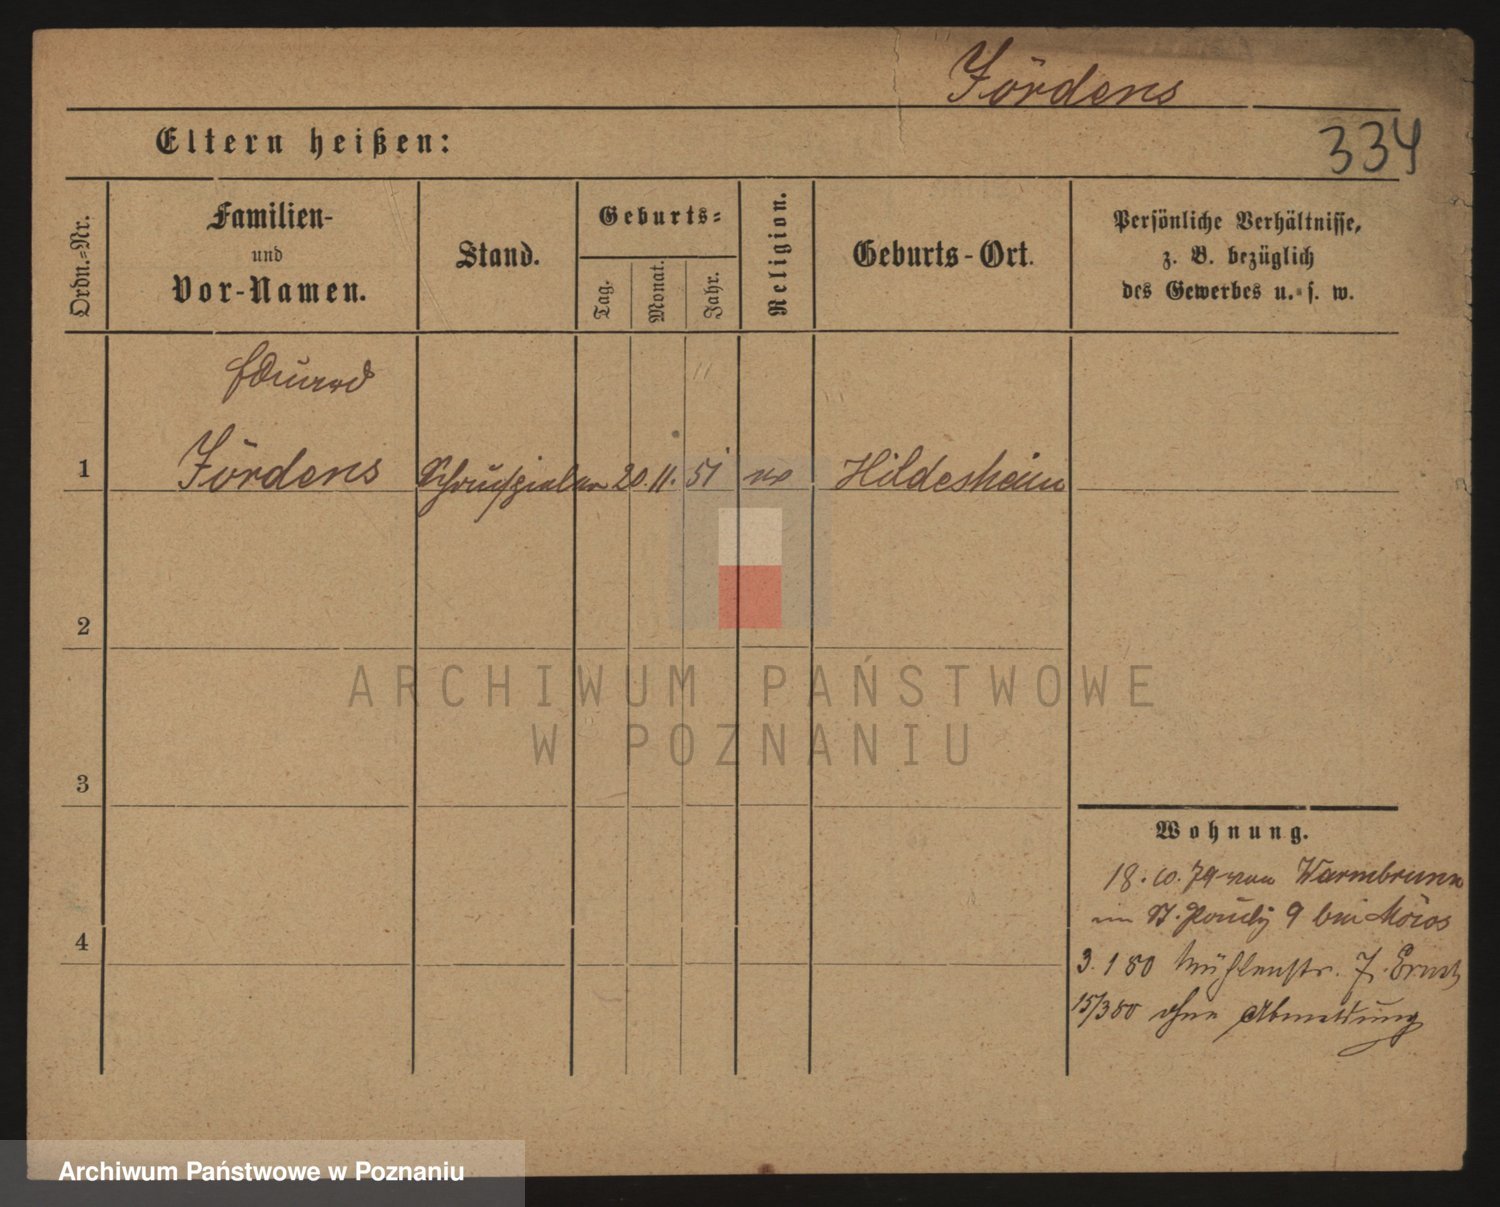 Jördens
334
Eltern heißen:
Ordn.-Nr.
Familien-
und
Vor-Namen.
Stand.
Geburts-
Tag.
Monat.
Jahr.
Religion.
Geburts-Ort.
Persönliche Verhältnisse,
z. B. bezüglich
des Gewerbes u. s. w.
Eduard
1 Jördens Schauspieler 20. 11. 51 ev Hildesheim
2
3
4
Wohnung.
18. 10. 79 von Warmbrunn
in St. 9 bei
3. 1 80 Mühlenstr. 7.
15/3 80 ohne Abmeldung
ARCHIWUM PAŃSTWOWE
W POZNANIU
Archiwum Państwowe w Poznaniu